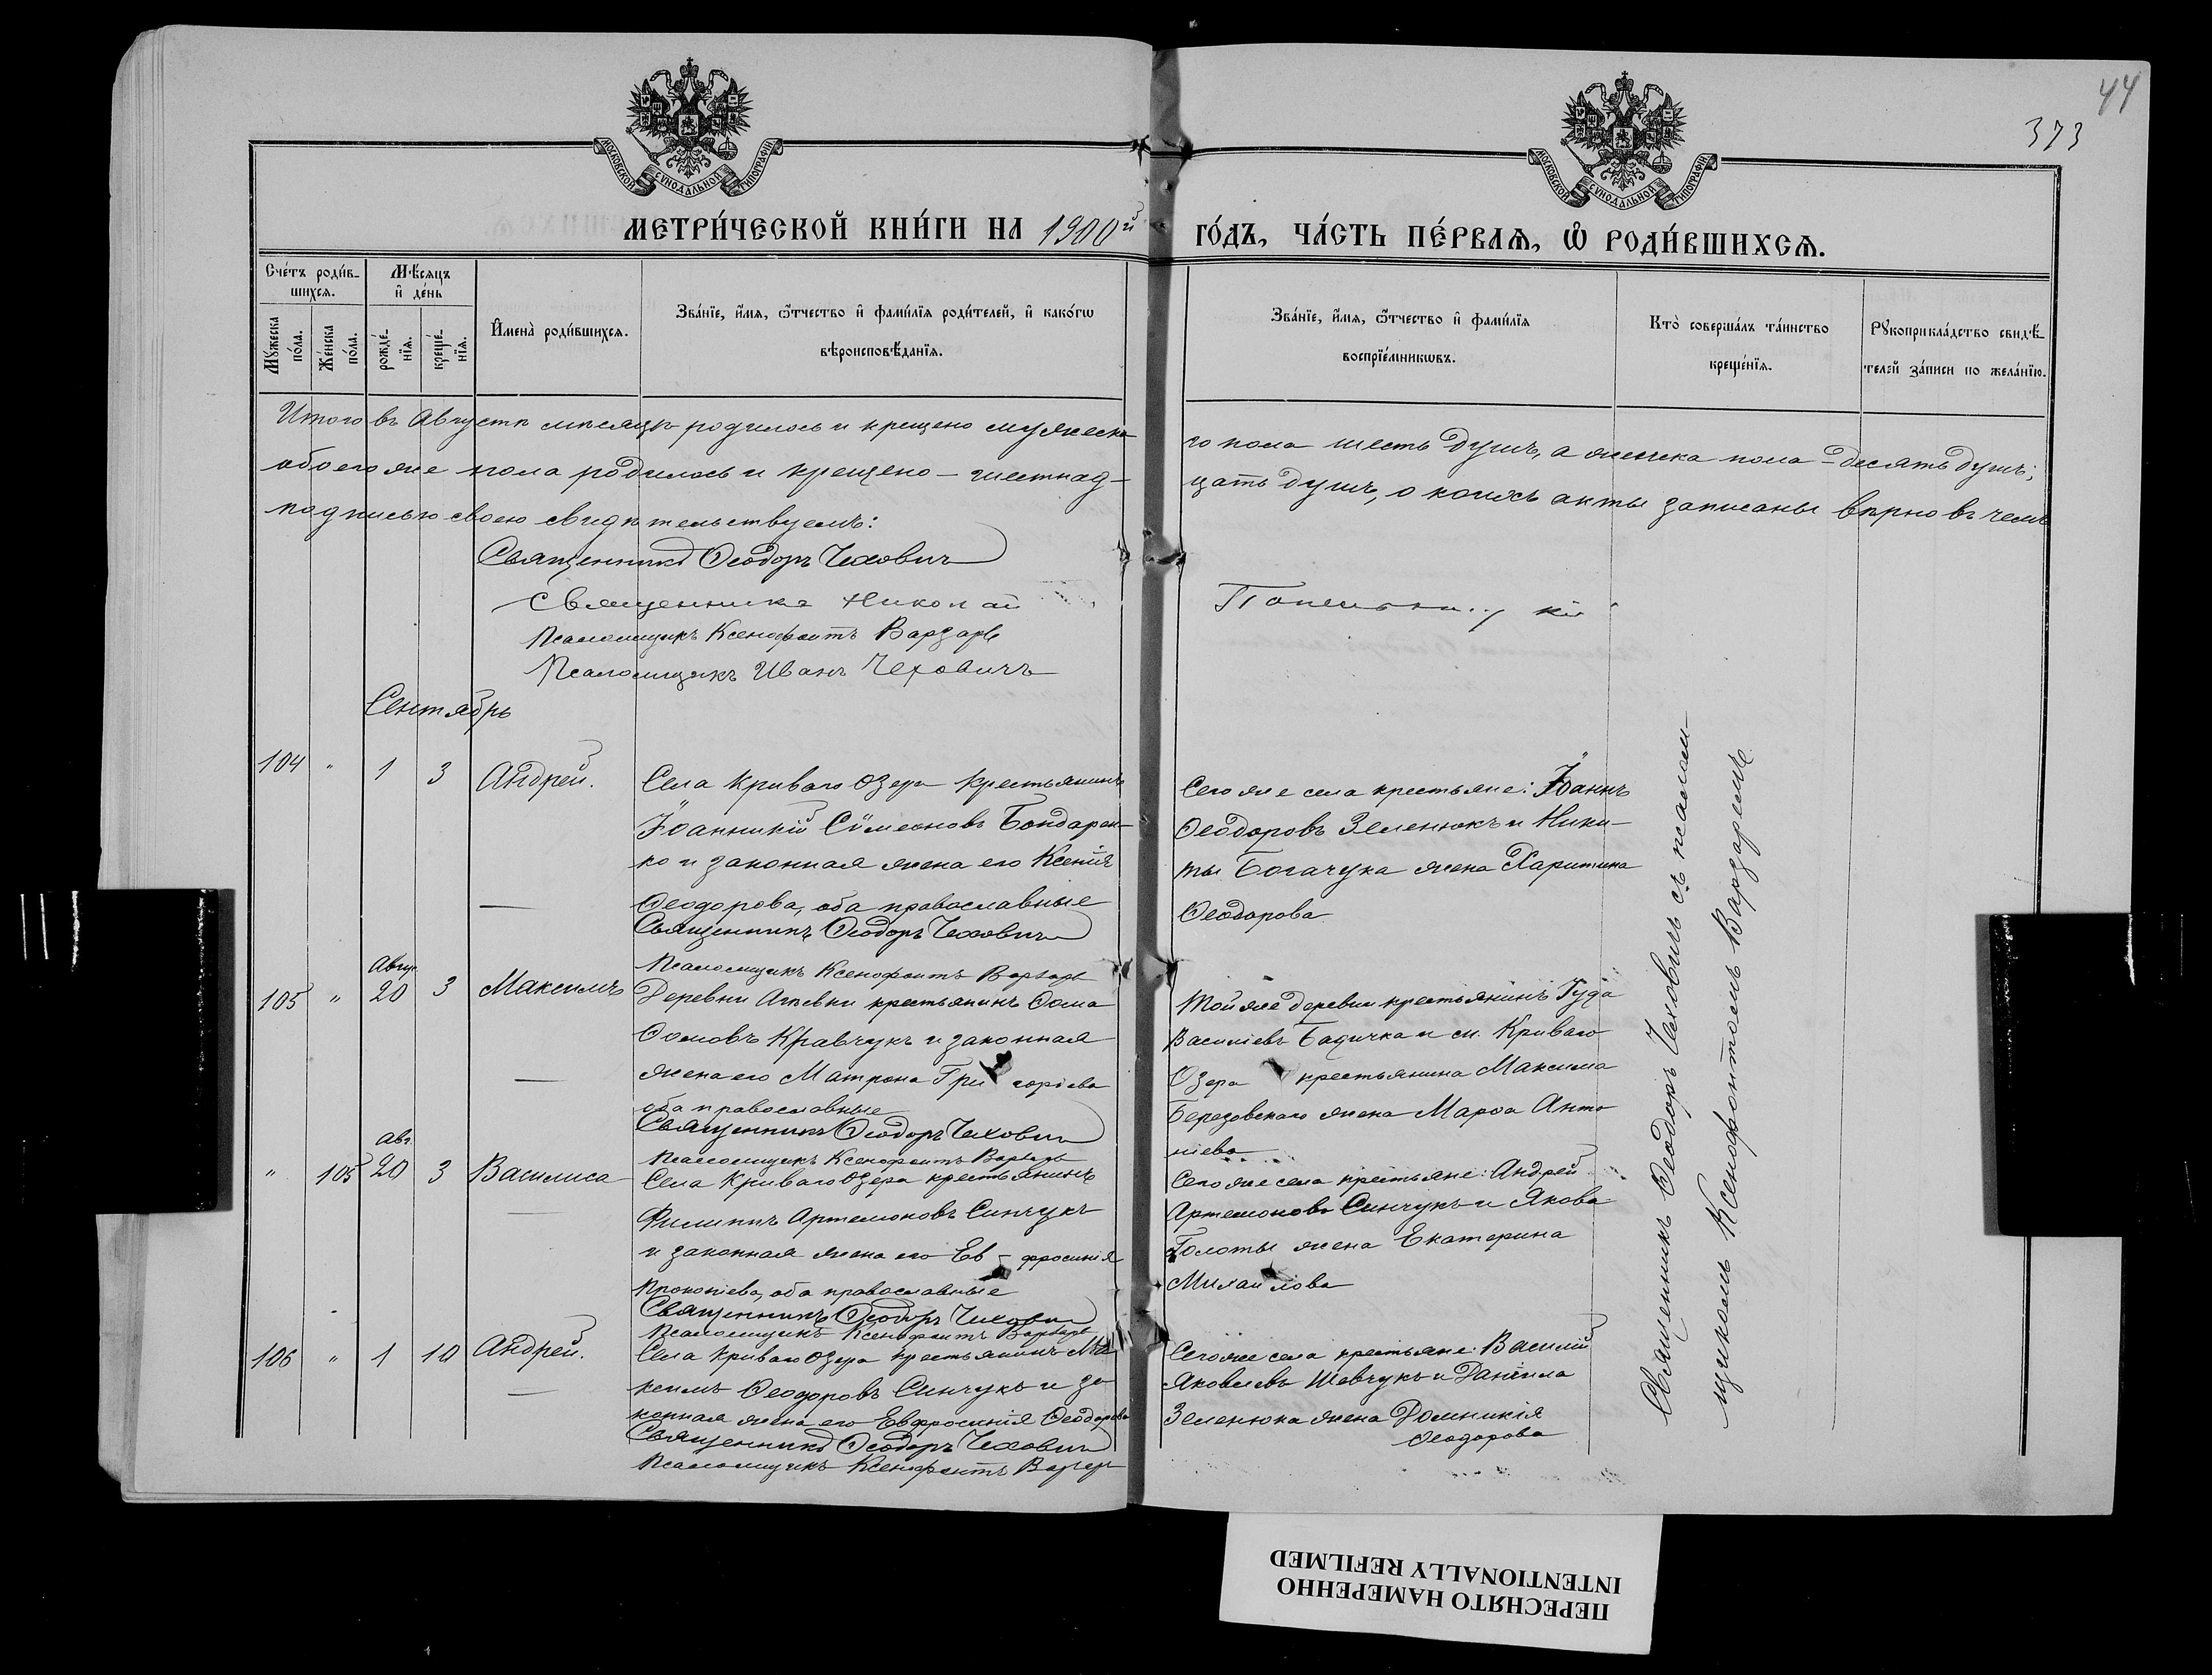 44
373
МОСКОВСКОЙ СѴНОДАЛЬНОЙ ТИПОГРАФІИ
МОСКОВСКОЙ СѴНОДАЛЬНОЙ ТИПОГРАФІИ
МЕТРИ́ЧЕСКОЙ КНИ́ГИ НА 1900й ГО́ДЪ, ЧА́СТЬ ПЕ́РВАѦ, Ѡ҆ РОДИ́ВШИХСѦ.
Сче́тъ роди́в-
шихсѧ.
Мѹ́жеска по́ла.
Же́нска по́ла.
Мѣ́сяцъ
и҆ де́нь
рожде́-
нїѧ.
креще́-
нїѧ.
И҆мена̀ роди́вшихсѧ.
Зва́нїе, и҆́мѧ, ѻ҆́тчество и҆ фами́лїѧ роди́телей, и҆ како́гѡ
вѣроисповѣ́данїѧ.
Зва́нїе, и҆́мѧ, ѻ҆́тчество и҆ фами́лїѧ
воспрїе́мникѡвъ.
Кто̀ соверша́лъ та́инство
креще́нїѧ.
Рѹкоприкла́дство свидѣ́-
телей за́писи по жела́нїю.
Итого въ Августѣ мѣсяцѣ родилось и крещено мужеска-
го пола шесть душъ, а женска пола - десять душъ;
обоего же пола родилось и крещено - шестнад-
цать душъ, о коихъ акты записаны вѣрно въ чемъ
подписью своею свидѣтельствуемъ:
Священникъ Ѳеодоръ Чехович
Священникъ Николай
Псаломщикъ Ксенофонтъ Варзарь
Псаломщикъ Иванъ Чеховичъ
Сентябрь
104 " 1 3 Андрей.
Села Криваго Озера крестьянинъ
Іоанникій Сѵмеоновъ Бондарен-
ко и законная жена его Ксенія
Ѳеодорова, оба православные
Священникъ Ѳеодоръ Чехович
Псаломщикъ Ксенофонтъ Варзарь
Сего же села крестьяне: Іоаннъ
Ѳеодоровъ Зеленюкъ и Ники-
ты Богачука жена Харитина
Ѳеодорова
105 " Авгу. 20 3 Максимъ
Деревни крестьянинъ Ѳома
Ѳомовъ Кравчукъ и законная
жена его Матрона Григоріева
оба православные
Священникъ Ѳеодоръ Чехович
Псаломщикъ Ксенофонтъ Варзарь
Той же деревни крестьянинъ Іуда
Василіевъ и с. Криваго
Озера крестьянина Максима
Березовскаго жена Марѳа Анто
ніева
" 105 Авг. 20 3 Василиса
Села Криваго Озера крестьянинъ
Филиппъ Артемоновъ Синчукъ
и законная жена его Ев-фросинія
Прокопіева, оба православные
Священникъ Ѳеодоръ Чехович
Псаломщикъ Ксенофонтъ Варзарь
Сего же села крестьяне: Андрей
Артемоновъ Синчукъ и Якова
Голоты жена Екатерина
Михайлова
106 " 1 10 Андрей.
Села Криваго Озера крестьянинъ Ма
ксимъ Ѳеодоровъ Синчукъ и за-
конная жена его Евфросинія Ѳеодорова
Священникъ Ѳеодоръ Чехович
Псаломщикъ Ксенофонтъ Варзарь
Сего же села крестьяне: Василій
Яковлевъ Шевчукъ и Даніила
Зеленюка жена Домникія
Ѳеодорова
Священникъ Ѳеодоръ Чеховичъ съ псалом-
щикомъ Ксенофонтомъ Варзаремъ
ПЕРЕСНЯТО НАМЕРЕННО
INTENTIONALLY REFILMED